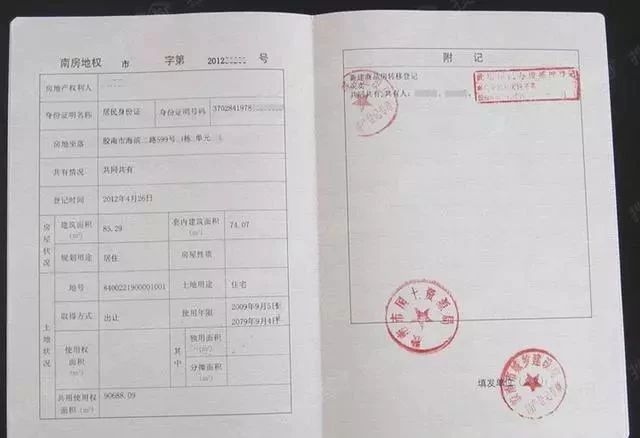 南房地权 市 字第 2012 号
房地产权利人
身份证明名称 居民身份证 身份证明号码 3702841978
房地坐落 胶南市海滨二路599号 栋 单元
共有情况 共同共有
登记时间 2012年4月26日
房屋状况
建筑面积(㎡) 85.29 套内建筑面积(㎡) 74.07
规划用途 居住 房屋性质
土地状况
地号 8400221900001001 土地用途 住宅
取得方式 出让 使用年限 2009年9月5日至
2079年9月4日
使用权面积(㎡) 其中 独用面积(㎡)
分摊面积(㎡)
共用使用权面积(㎡) 90688.09
附 记
新建商品房转移登记
共同共有, 共有人:
胶南市国土资源局
填发单位
胶南市城乡建设局